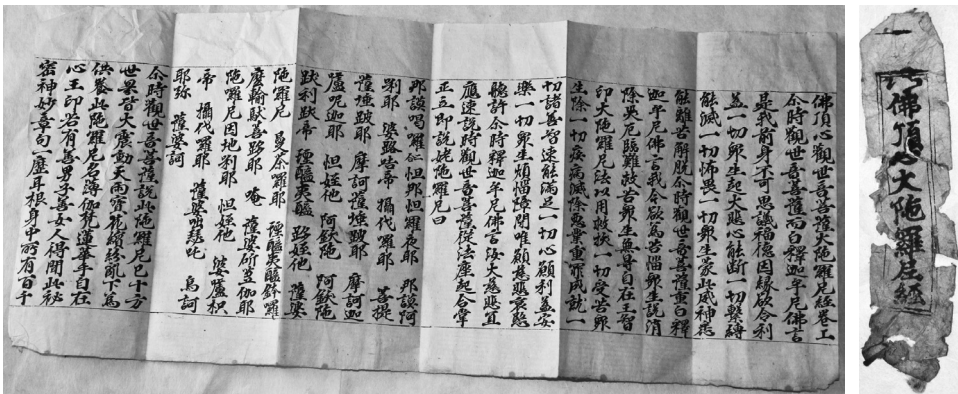 佛頂心觀世音菩薩大陁羅尼經卷上
尒時觀世音菩薩而白釋迦牟尼佛言
是我前身不可思議福德因緣欲令利
益一切衆生起大悲心能斷一切繫縛
能滅一切怖畏一切衆生蒙此威神悉
能離苦解脫尒時觀世音菩薩重白釋
迦牟尼佛言我今欲為苦惱衆生說消
除灾厄臨難救苦衆生無㝵自在王智
印大陁羅尼法以用救扶一切受苦衆
生除一切疾病滅除惡業重罪成就一
切諸善智速能滿足一切心願利益安
樂一切衆生煩惱障閉唯願慈悲哀愍
聽許尒時釋迦牟尼佛言汝大慈悲宜
應速說時觀世音菩薩從法座起合掌
正立即說姥陁羅尼曰
那謨喝囉怛那怛囉夜耶 那謨阿
剎耶 婆路咭帝 攝伐囉耶 菩提
薩埵跛耶 摩訶薩埵跛耶 摩訶迦
嚧呢迦耶 怛姪他 阿鈥陁 阿鈥陁
跋利跋帝 堙醯夷醯 跢姪他 薩婆
陁羅尼 曼奈囉耶 堙醯夷醯鉢囉
麼輸馱菩跢耶 唵 薩婆斫蒭伽耶
陁羅尼因地利耶 怛姪他 婆嚧枳
帝 攝伐羅耶 薩婆咄瑟吒 烏訶
耶弥 薩婆訶
尒時觀世音菩薩說此陁羅尼已十方
世界皆大震動天雨寶花繽紛亂下為
供養此陁羅尼名薄伽梵蓮華手自在
心王印若有善男子善女人得聞此祕
密神妙章句一歷耳根身中所有百千
佛頂心大陁羅尼經